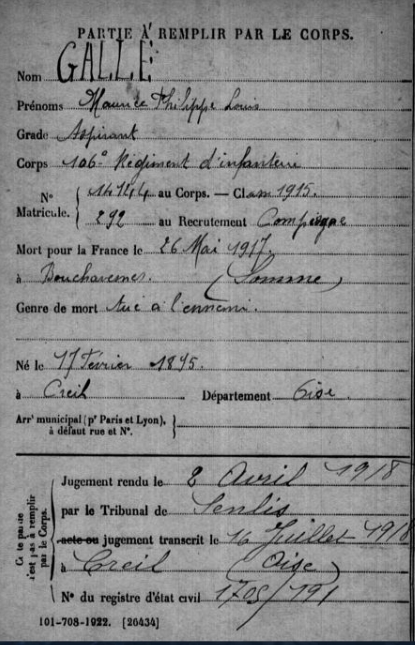 PARTIE À REMPLIR PAR LE CORPS.
Nom GALLE
Prénoms Maurice Philippe Louis
Grade Aspirant
Corps 106e Régiment d'infanterie
N° Matricule. { 14744 au Corps. — Classe 1915.
292 au Recrutement Compiègne
Mort pour la France le 26 Mai 1917.
à Bouchavesnes. (Somme)
Genre de mort Tué à l'ennemi.
Né le 17 Février 1895.
à Creil Département Oise.
Arrt municipal (pr Paris et Lyon), à défaut rue et N°. }
Cette partie n'est pas à remplir par le Corps.
Jugement rendu le 2 Avril 1918
par le Tribunal de Senlis
acte ou jugement transcrit le 16 Juillet 1918
à Creil (Oise)
N° du registre d'état civil 1705/191
101-708-1922. [20434]